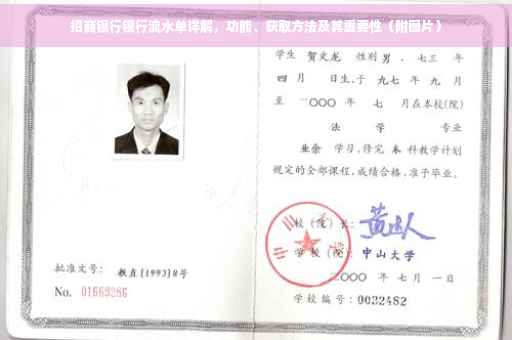 招商银行银行流水单详解，功能、获取方法及其重要性（附图片）
学生 贺文龙 性别 男 、七三 年
四 月 日生,于 九七 年 九 月
至 二〇〇〇 年 七 月在本校(院)
法 学 专业
业余 学习,修完 本 科教学计划
规定的全部课程,成绩合格,准予毕业。
校(院)长:
学校(院): 中山大学
二〇〇〇 年 七 月 一 日
学校编号: 0032482
批准文号: 教直[1993]8号
No. 01669286